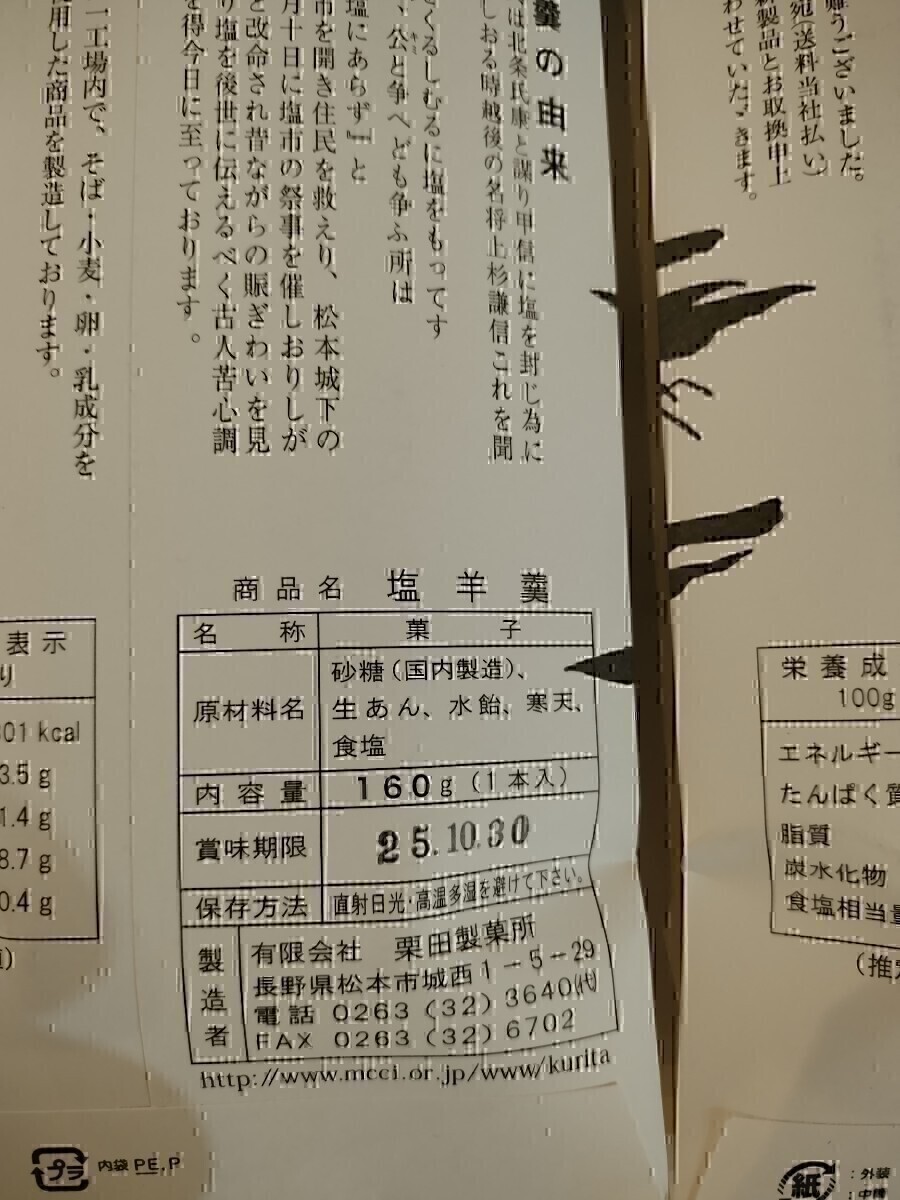 難うございました。
宛(送料当社払い)
新製品とお取換申上
わせていたゞきます。
羹の由来
は北条氏康と謀り甲信に塩を封じ為に
しおる時越後の名将上杉謙信これを聞
くるしむるに塩をもってす
、公と争へども争ふ所は
塩にあらず』と
市を開き住民を救えり、松本城下の
月十日に塩市の祭事を催しおりしが
と改命され昔ながらの賑ぎわいを見
り塩を後世に伝えるべく古人苦心調
を得今日に至っております。
一工場内で、そば・小麦・卵・乳成分を
使用した商品を製造しております。
商品名 塩羊羹
名称 菓子
原材料名 砂糖(国内製造)、
生あん、水飴、寒天、
食塩
内容量 160g(1本入)
賞味期限 25.10.30
保存方法 直射日光・高温多湿を避けて下さい。
製造者 有限会社 栗田製菓所
長野県松本市城西1-5-29
電話 0263(32)3640(代)
FAX 0263(32)6702
http://www.mcci.or.jp/www/kurita
表示
り
01 kcal
3.5 g
1.4 g
8.7 g
0.4 g
栄養成
100g
エネルギー
たんぱく質
脂質
炭水化物
食塩相当量
(推定
プラ 内袋 PE,P
紙 :外装